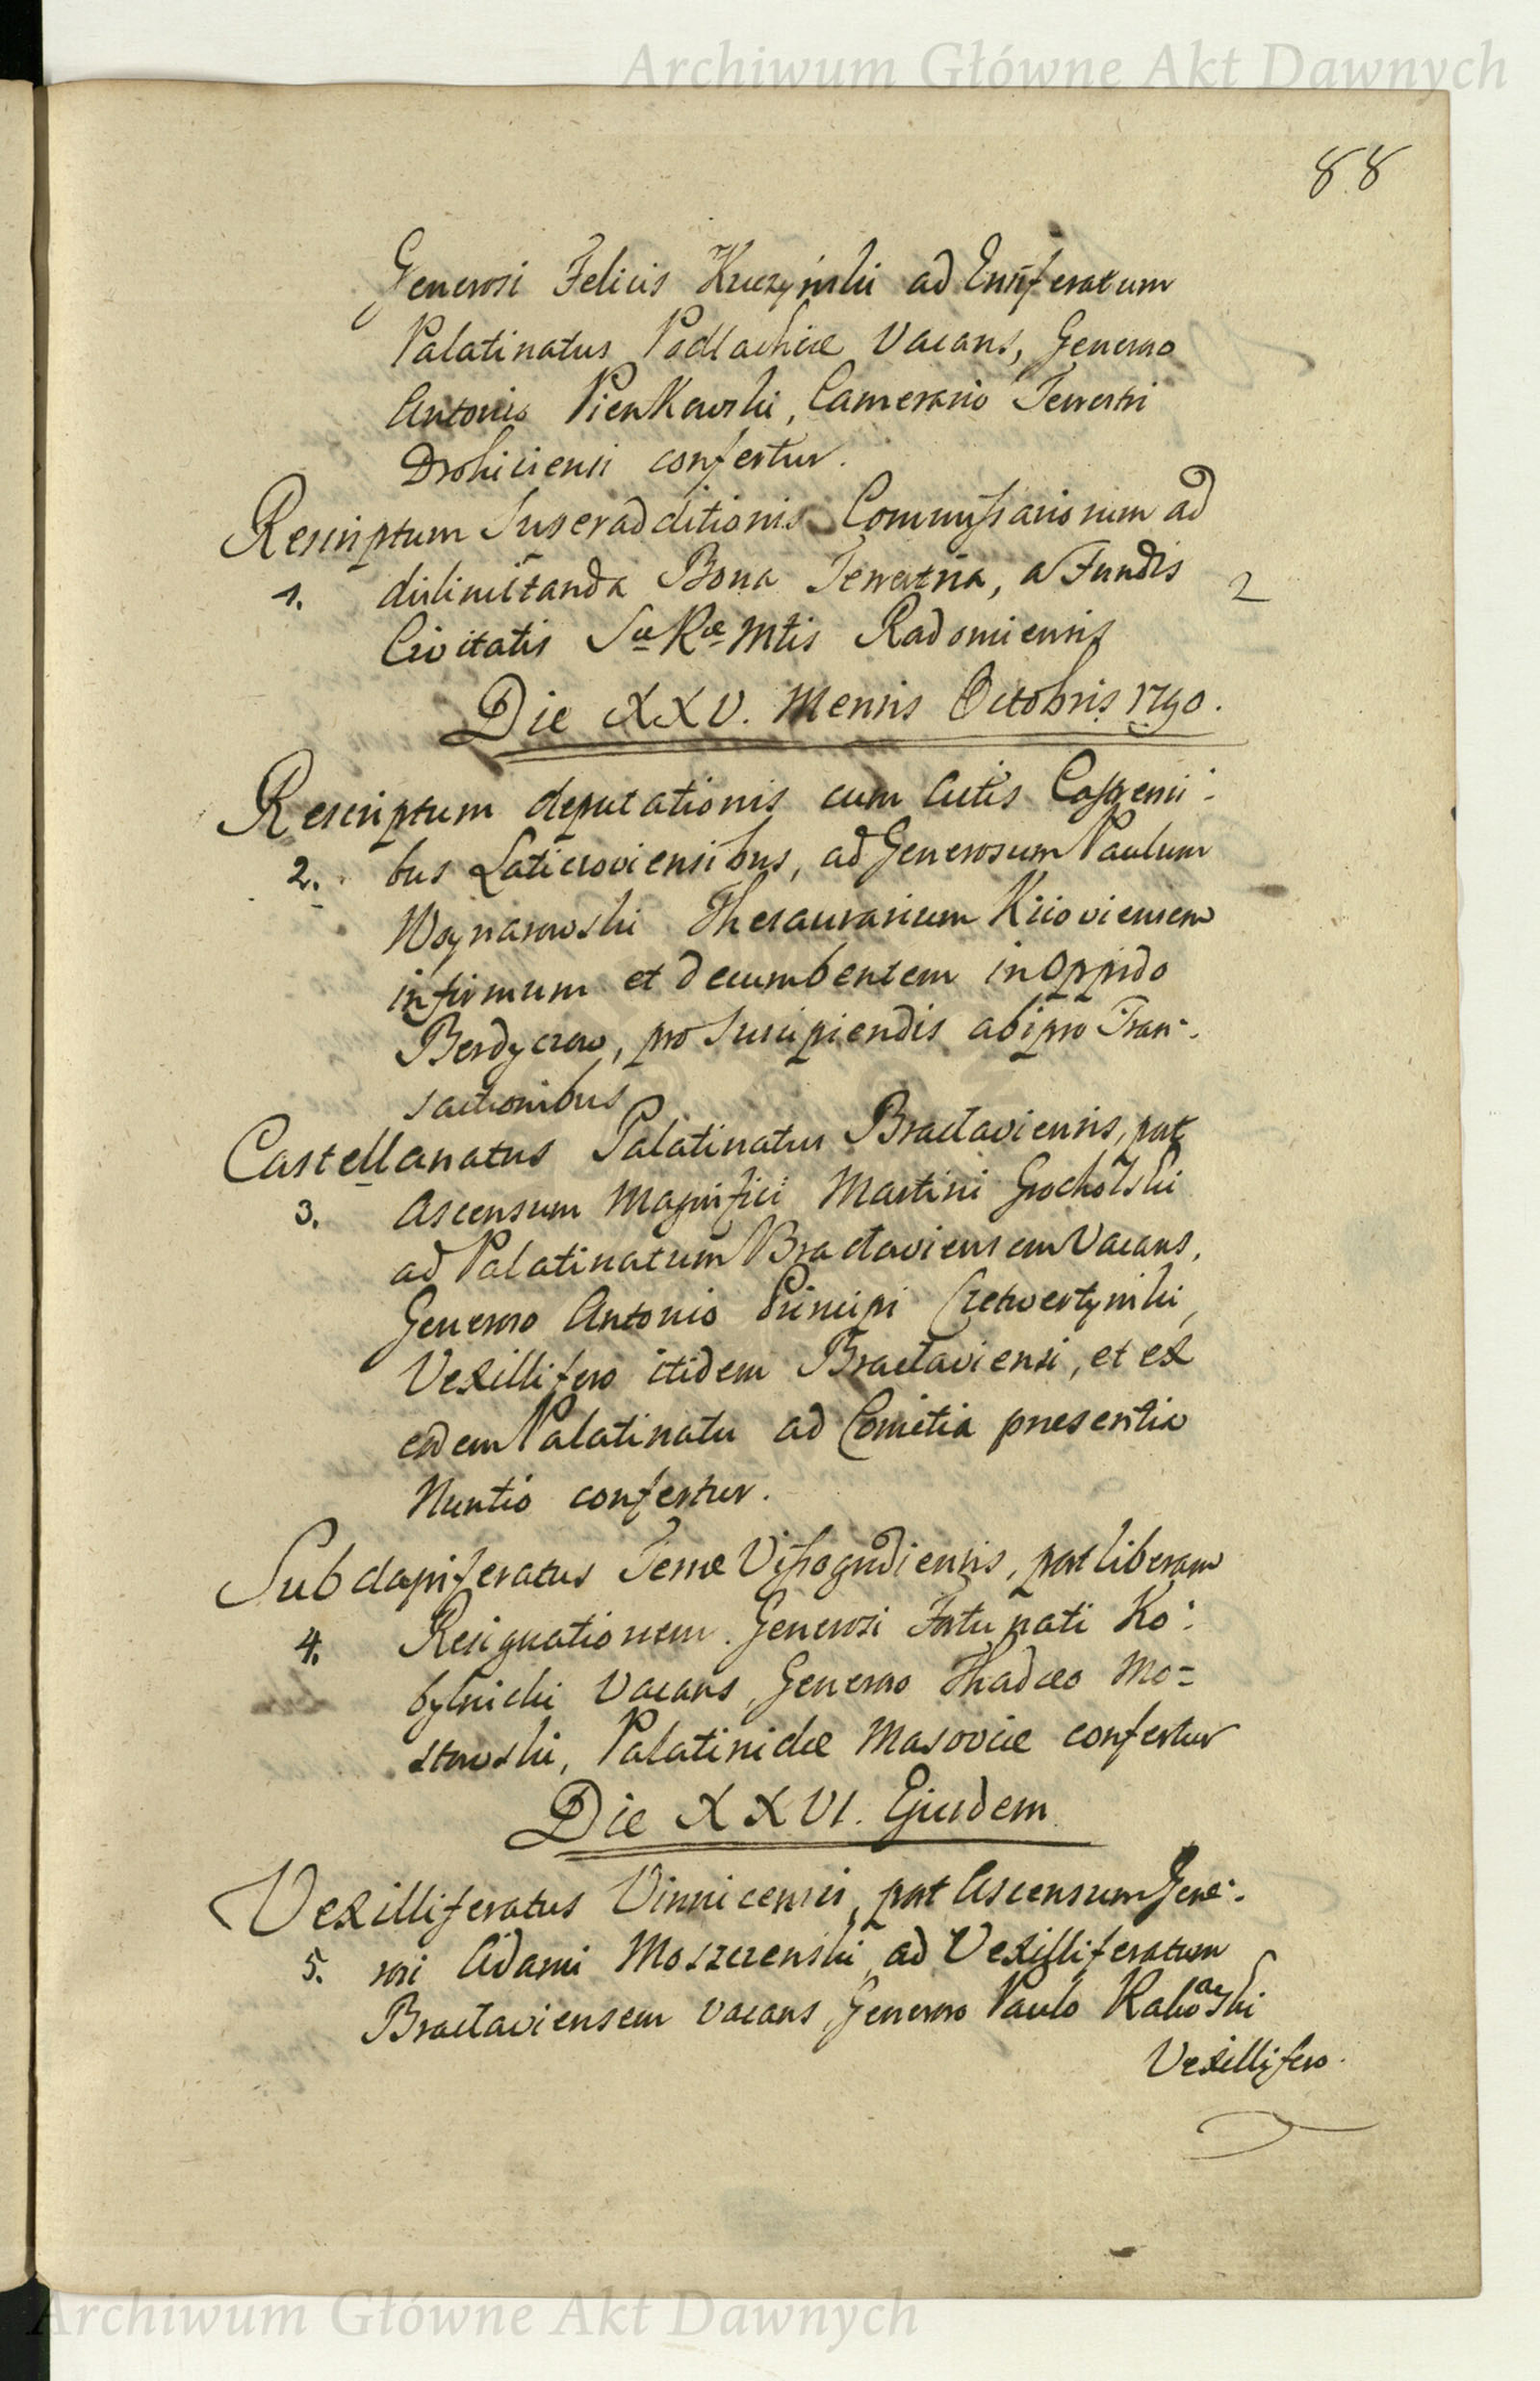 Archiwum Główne Akt Dawnych
88
Generosi Felicis Kuczyński ad Ensiferatum
Palatinatus Podlachiæ Vacans, Generoso
Antonio Pienkowski, Camerario Terrestri
Drohiciensi confertur.
Rescriptum Superadditionis Commissariorum ad
1. dislimitanda Bona Terrestria, a Fundis 2
Civitatis Sæ Ræ Mtis Radomiensis
Die XXV. Mensis Octobris 1790.
Rescriptum deputationis cum Actis Castrensi-
2. bus Laticzoviensibus, ad Generosum Paulum
Woynarowski Thesaurarium Kiioviensem
infirmum et decumbentem in Oppido
Berdyczew, pro Suscipiendis ab ipso Tran-
sactionibus
Castellanatus Palatinatus Braclaviensis, post
3. Ascensum Magnifici Martini Grocholski
ad Palatinatum Braclaviensem Vacans,
Generoso Antonio Principi Czetwertyński,
Vexillifero itidem Braclaviensi, et ex
eodem Palatinatu ad Comitia præsentia
Nuntio confertur.
Subdapiferatus Terræ Vissogrodiensis, post liberam
4. Resignationem Generosi Fortunati Ko-
bylnicki Vacans, Generoso Thadæo Mo=
stowski, Palatinidæ Masoviæ confertur
Die XXVI. Ejusdem
Vexilliferatus Vinnicensis, post Ascensum Gene-
5. rosi Adami Moszczenski, ad Vexilliferatum
Braclaviensem vacans, Generoso Paulo
Vexillifero.
Archiwum Główne Akt Dawnych